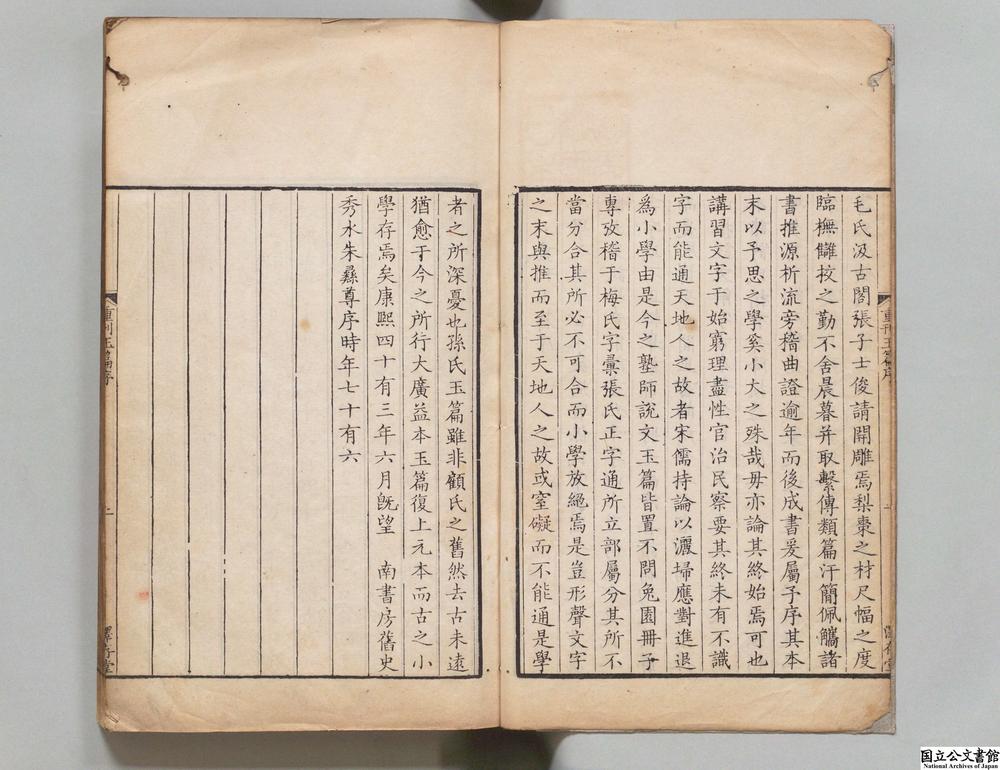 毛氏汲古閣張子士俊請開雕焉梨棗之材尺幅之度
臨橅讎挍之勤不舍晨暮并取繫傳類篇汗簡佩觿諸
書推源析流旁稽曲證逾年而後成書爰屬予序其本
末以予思之學奚小大之殊哉毋亦論其終始焉可也
講習文字于始窮理盡性官治民察要其終未有不識
字而能通天地人之故者宋儒持論以灑埽應對進退
為小學由是今之塾師說文玉篇皆置不問兔園冊子
專攷稽于梅氏字彙張氏正字通所立部屬分其所不
當分合其所必不可合而小學放絕焉是豈形聲文字
之末與推而至于天地人之故或窒礙而不能通是學
者之所深憂也孫氏玉篇雖非顧氏之舊然去古未遠
猶愈于今之所行大廣益本玉篇復上元本而古之小
學存焉矣康熙四十有三年六月旣望　南書房舊史
秀水朱彝尊序時年七十有六
重刊玉篇序
澤存堂
国立公文書館
National Archives of Japan